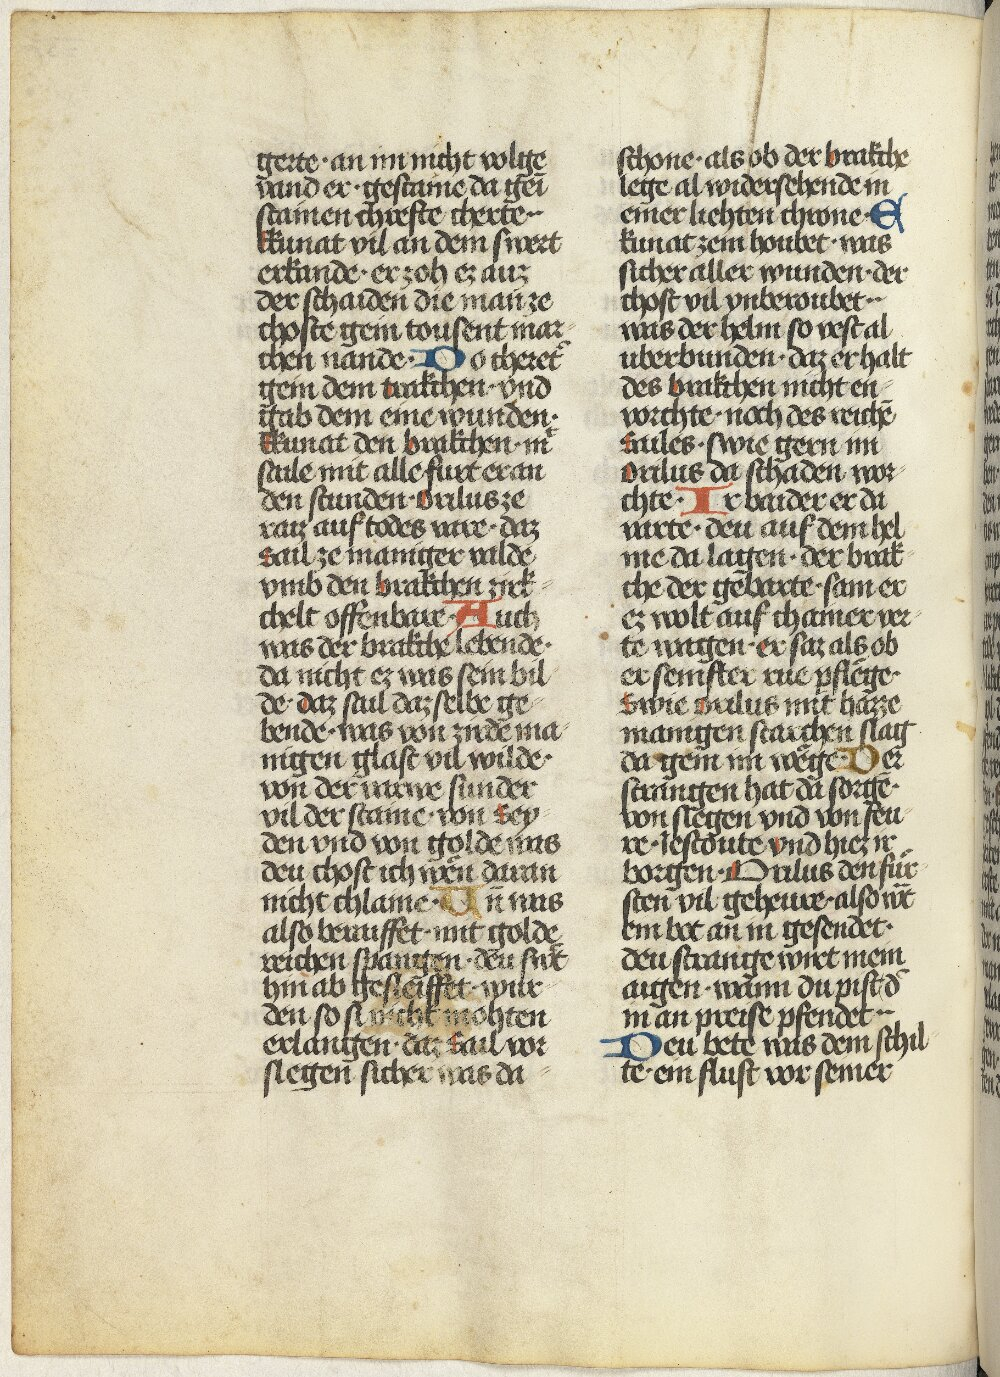 gerte · an im nicht volge
vand er · gestaine da gēi
stainen chrefte cherte ··
Ekunat vil an dem swert
erkande · er zoh ez auz
der schaiden die man ze
choste gein tousent mar-
chen nande · Do cheret
gein dem brakchen · vnd
gab dem eine wunden ·
Ekunat den brakchen · mit
saile mit alle furt er an
den stunden · Orilus ze
raiz auf todes vare · daz
Sail ze maniger valde
vmb den brakchen zirk-
chelt offenbare · Auch
was der brakche lebende ·
da nicht ez was sein bil-
de · daz sail daz selbe ge-
bende · was von zirde ma-
nigen glast vil wilde ·
von der varwe sunder
vil der staine · von Sey-
den vnd von golde was
deu chost ich wen daran
nicht chlaine · Vn̄ was
also berauffet · mit golde
reichen spangen · deu swert
hin ab gesleiffet · wur-
den so si nicht mohten
erlangen · daz Sail vor
slegen sicher was da
schone · als ob der brakche
lege al widersehende in
einer liehten chrone · E
kunat zem houbet · was
sicher aller wunden · der
chost vil vnberoubet ··
was der helm so vest al
uberbunden · daz er halt
des brakchen nicht en-
vorchte · noch des reichē
Sailes · swie gern im
Orilus da schaden wor-
chte · Ir baider er da
varte · deu auf dem hel
me da lagen · der brak-
che der gebarte · sam er
ez wolt auf chamer ver-
te wagen · er saz als ob
er semfter rue pflege ·
Swie Orilus mit hazze
manigen starchen slag
da gein im wege · Der
strangen hat da sorge ·
von slegen vnd von feu-
re · Iescoute vnd hiez ir
borgen · Orilus den für-
sten vil geheure · also wt
ein bot an in gesendet ·
deu strange wirt mein
aigen · wann du pist d͛
m an preise pfendet ··
Deu bete was dem schil-
te · ein flust vor seiner